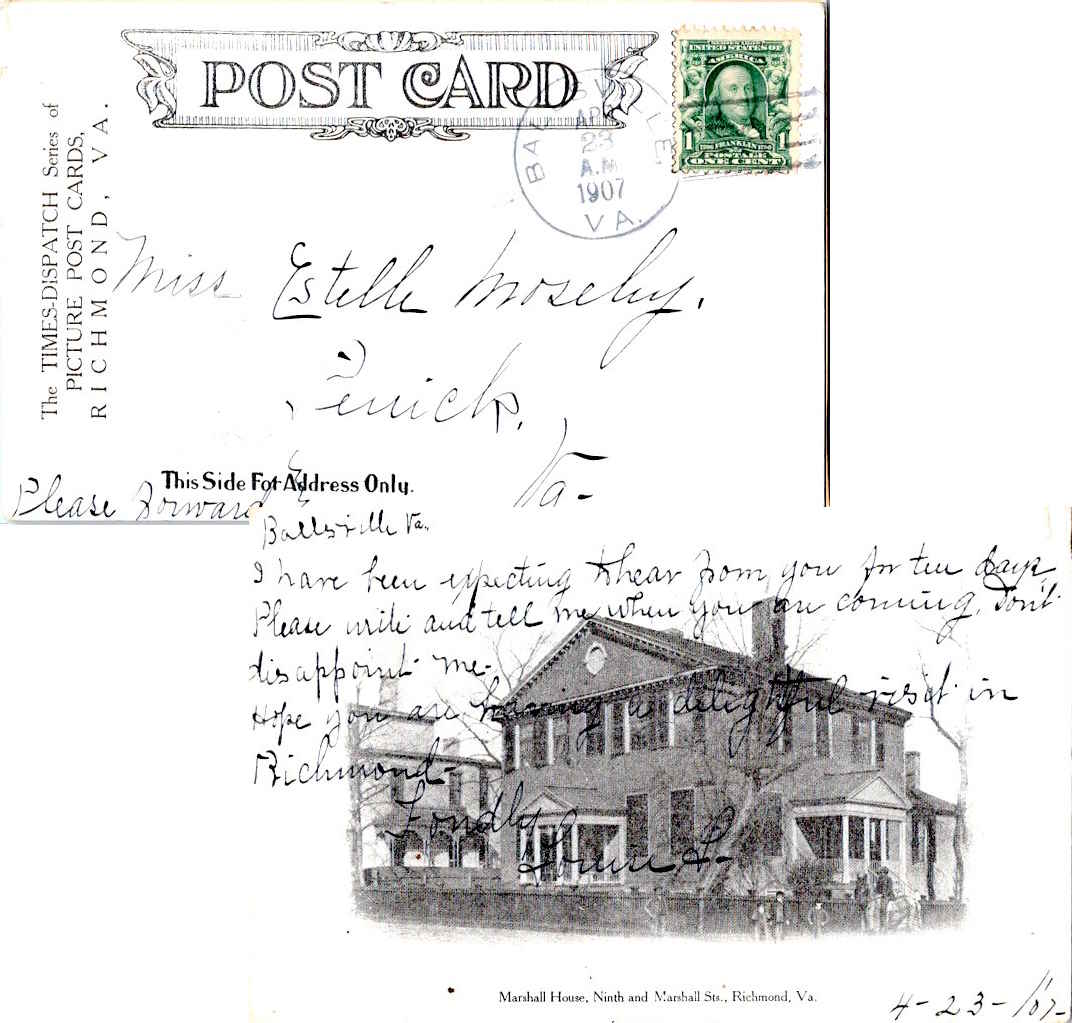 POST CARD
The TIMES-DISPATCH Series of
PICTURE POST CARDS,
RICHMOND, VA.
BALLSVILLE
APR
23
A.M
1907
VA.
UNITED STATES OF
AMERICA
1 FRANKLIN 1
POSTAGE
ONE CENT
Miss Estelle Moseley.
Fenick,
Va-
This Side For Address Only.
Please Forward
Ballsville Va.
I have been expecting to hear from you for ten days,
Please write and tell me when you are coming, Don't
disappoint me-
Hope you are having a delightful visit in
Richmond-
Fondly
Marshall House, Ninth and Marshall Sts., Richmond, Va.
4-23-/07-